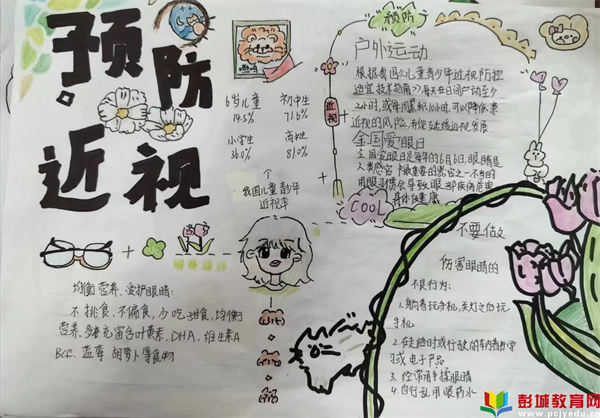 预防
近视
6岁儿童
14.5%
初中生
71.6%
小学生
36.0%
高中生
81.0%
我国儿童青少年
近视率
均衡营养、爱护眼睛:
不挑食、不偏食,少吃甜食,均衡
营养,多补充富含叶黄素,DHA,维生素A
蓝莓 胡萝卜等食物
预防
近视
COOL
户外运动
根据我国《儿童青少年近视防控
适宜技术指南》每天在日间户外至少
2小时,或每周累积10小时,可以降低患
近视的风险,并能延缓近视发展
全国爱眼日
全国爱眼日是每年的6月6日,眼睛是
人类感官中最重要的器官之一,不当的
用眼习惯会导致眼部疾病危害
身体健康
不要做
伤害眼睛的
不良行为:
1.躺着玩手机,关灯之后玩
手机
2.在走路时或行驶的车内看书
或电子产品
3.经常用手揉眼睛
4.自行乱用眼药水
彭城教育网
www.pcjyedu.cn